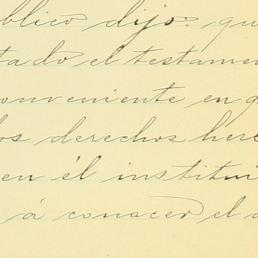 blico dijo: qu
tado el testamen
conveniente en g
los derechos here
en él institui
á conocer el a